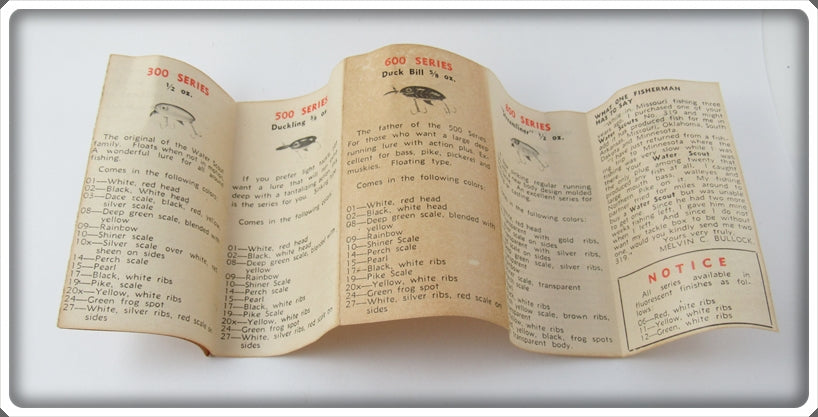 300 SERIES
½ oz.
The original of the Water Scout
family. Floats when not in
A wonderful lure for all around
fishing.
Comes in the following colors:
01—White, red head
02—Black, White head
03—Dace scale, black, red, yellow
silver scale
08—Deep green scale, blended with
yellow
09—Rainbow
10—Shiner scale
10x—Silver scale over white, red
sheen on sides
14—Perch scale
15—Pearl
17—Black, white ribs
19—Pike, scale
20x—Yellow, white ribs
24—Green frog spot
27—White, silver ribs, red scale
sides
500 SERIES
Duckling ⅜ oz.
If you prefer light
want a lure that will
deep with a tantalizing
is the series for you.
Comes in the following
01—White, red head
02—Black, white head
08—Deep green scale, blended with
yellow
09—Rainbow
10—Shiner Scale
14—Perch scale
15—Pearl
17—Black, white ribs
19—Pike Scale
20x—Yellow, white ribs
24—Green frog spot
27—White, silver ribs, red scale on
sides
600 SERIES
Duck Bill ⅝ oz.
The father of the 500 Series.
For those who want a large deep
running lure with action plus. Ex-
cellent for bass, pike, pickerel and
muskies. Floating type.
Comes in the following colors:
01—White, red head
02—Black, white head
08—Deep green scale, blended with
yellow
09—Rainbow
10—Shiner Scale
14—Perch scale
15—Pearl
17—Black, white ribs
19—Pike Scale
20x—Yellow, white ribs
24—Green frog spot
27—White, silver ribs, red scale on
sides
SERIES
½ oz.
regular running,
body design molded
excellent series for
the following colors:
red head
with gold ribs,
scale on sides
with silver ribs,
on sides
green scale, silver ribs,
scale, transparent
scale
white ribs
yellow scale, brown ribs,
white ribs
yellow, black, frog spots
transparent body.
WHAT ONE FISHERMAN
HAD TO SAY
in Missouri fishing three
I purchased one of your
Water Scouts No. 319 and might
it produced fish for me in
Missouri, Oklahoma, South
Dakota and Minnesota.
just returned from a fish-
Minnesota where the
while I was
you among twenty that
Water Scout I caught
fish 31 walleyes and
pike on it. My fishing
miles around to
Water Scout but was unable
one. Since he had two more
fishing I gave him mine
when I left. And since I do not
want my tackle box to be without
one would you kindly send me two
319."
Yours very truly,
MELVIN C. BULLOCK
NOTICE
All series available in
fluorescent finishes as fol-
lows:
06—Red, white ribs
11—Yellow, white ribs
12—Green, white ribs